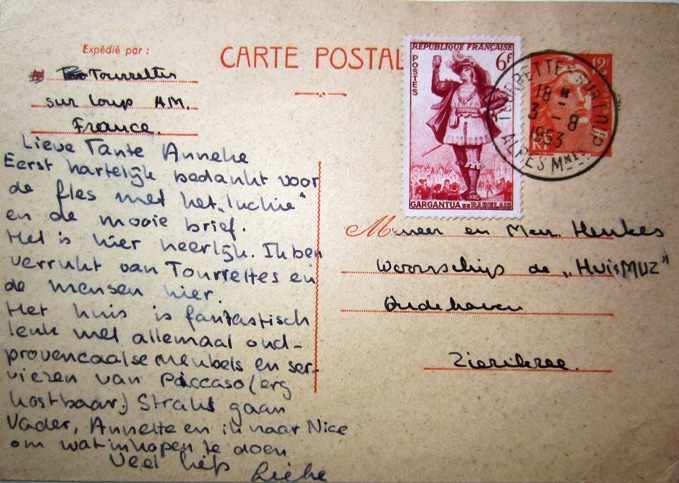 Expédié par :
CARTE POSTALE
Tourrettes
sur Loup A.M.
France.
Lieve Tante Anneke
Eerst hartelijk bedankt voor
de fles met het "luchie"
en de mooie brief.
Het is hier heerlijk. Ik ben
verrukt van Tourrettes en
de mensen hier.
Het huis is fantastisch
leuk met allemaal oud-
provencaalse meubels en ser-
viezen van Piccaso (erg
kostbaar) Straks gaan
Vader, Annette en ik naar Nice
om wat inkopen te doen
Veel liefs
RÉPUBLIQUE FRANÇAISE
6F
POSTES
GARGANTUA DE RABELAIS
12F
TOURRETTES-SUR-LOUP
18 H
3 - 8
1953
ALPES MMES
Meneer en Mevr. Henkes
Woonschip de „HuisMUZ"
Oudehaven
Zierikzee.